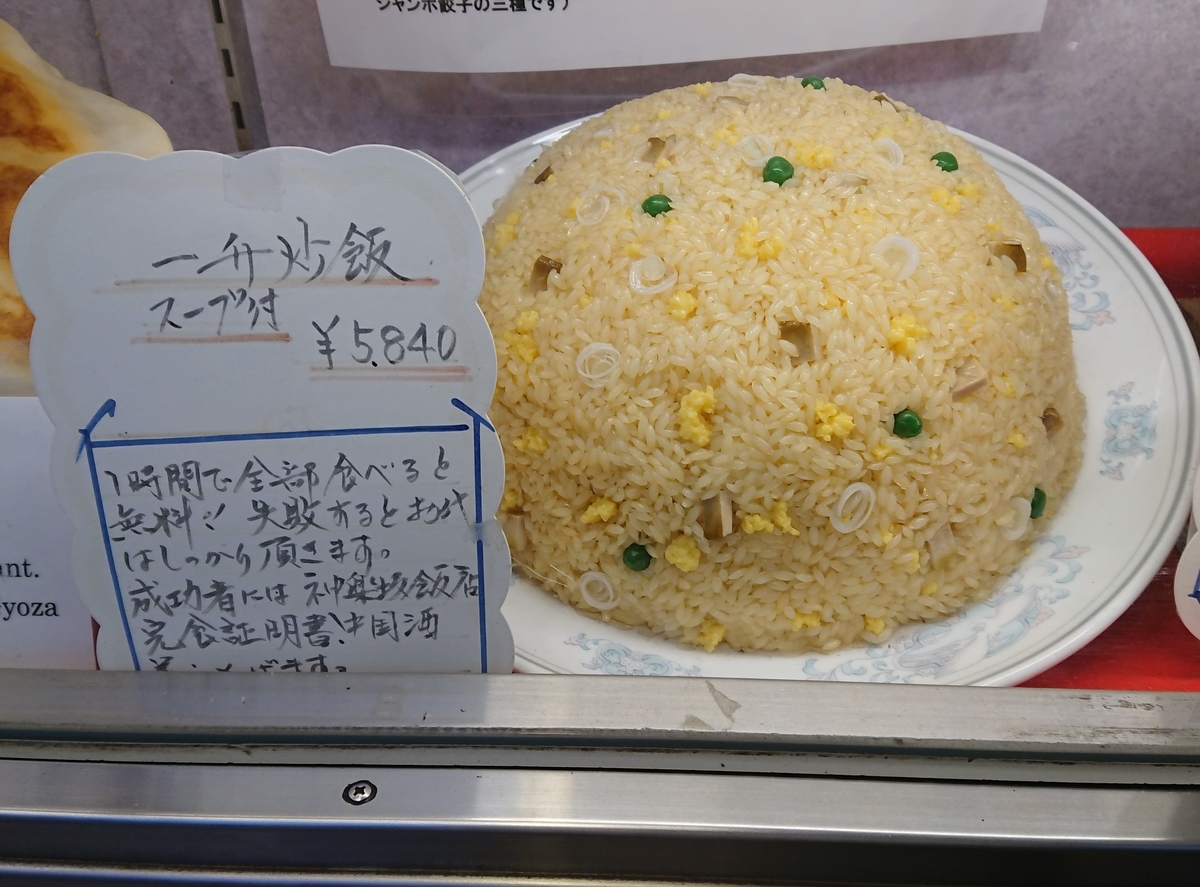 ジャンボ餃子の三種です)
一升炒飯
スープ付
¥5.840
1時間で全部食べると
無料!! 失敗するとお代
はしっかり頂きます。
成功者には神楽坂飯店
完食証明書、中国酒
ant.
yoza